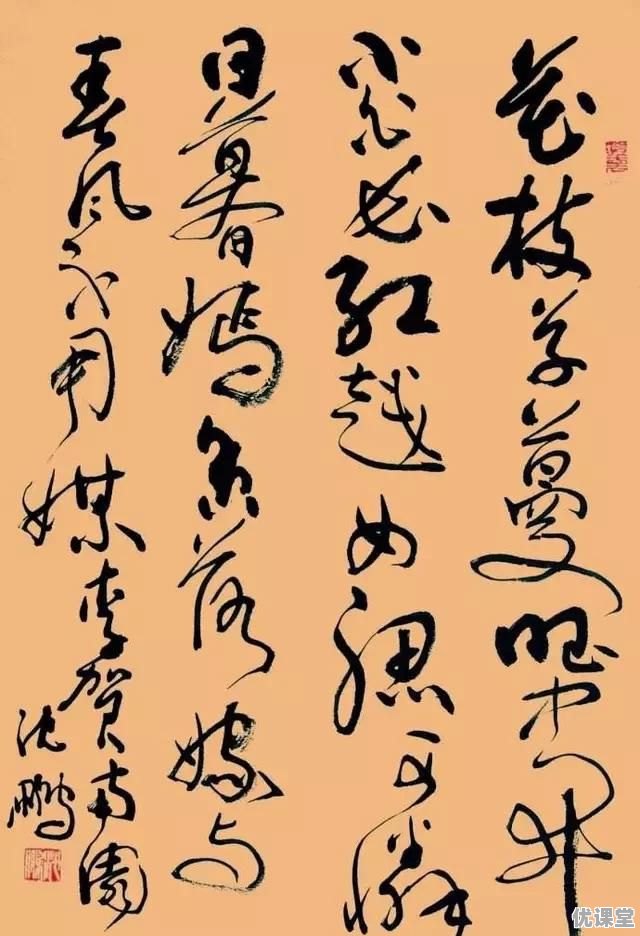 花枝草蔓眼中开
小白长红越女腮可憐
日暮嫣香落嫁与
春风不用媒李贺南园
沈鹏
优课堂